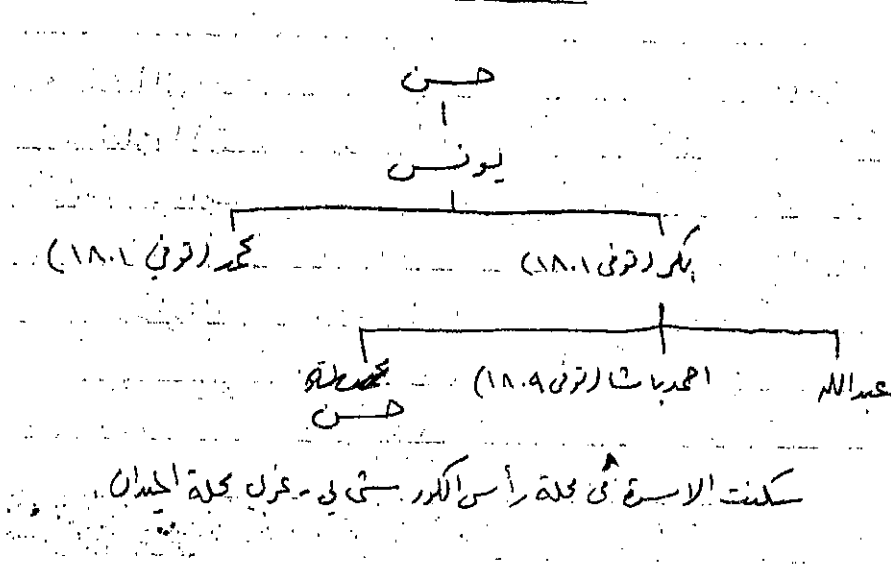 حسن
يونس
بكر (توفى ١٨٠١) محمد (توفي ١٨٠١)
عبدالله احمد باشا (توفى ١٨٠٩)
حسن
سكنت الاسرة في محلة رأس الكور شمالي - غرب محلة الميدان.